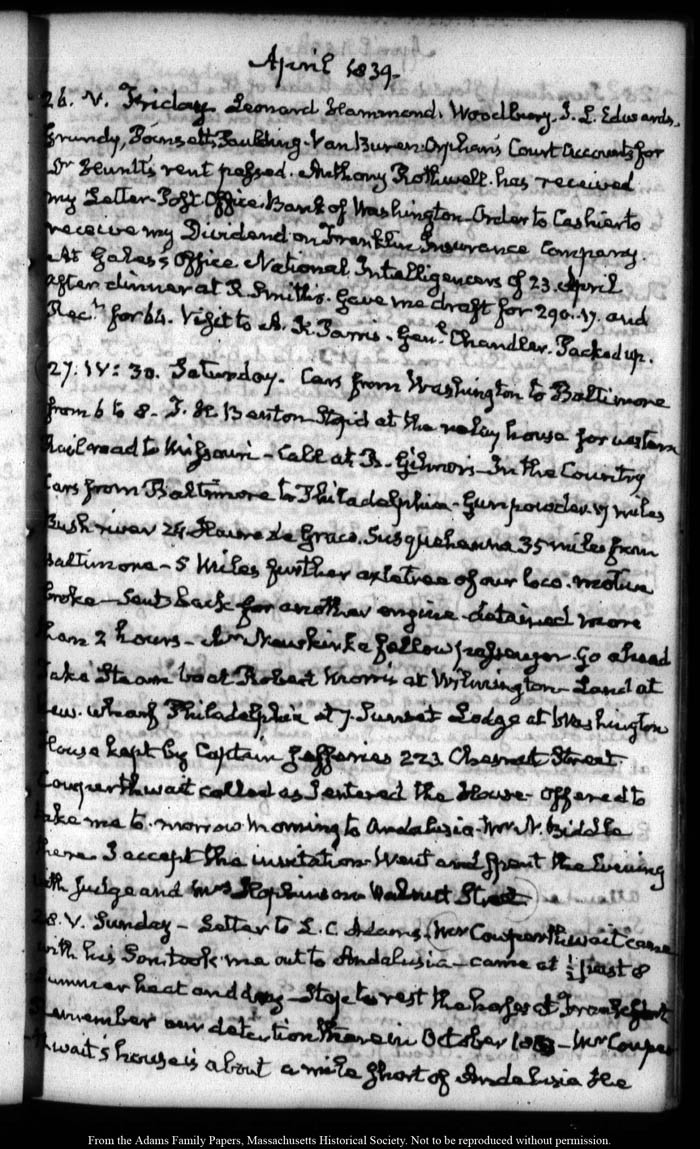 April 1839.
26. V. Friday Leonard Hammond. Woodbury. J. L. Edwards.
Grundy, Poinsett, Paulding. Van Buren. Orphan's Court Accounts for
Dr Huntt's rent passed. Anthony Rothwell. has received
my Letter. Post Office. Bank of Washington. Order to Cashier to
receive my Dividend on Franklin Insurance Company.
At Gales's Office National Intelligencers of 23. April
after dinner at R. Smith's. Gave me draft for 290.17. and
Rect. for 64. Visit to A. K. Parris. Genl. Chandler. Packed up.
27. IV: 30. Saturday. Cars from Washington to Baltimore
from 6 to 8. T. H. Benton Stop'd at the relay house for western
Rail road to Missouri – Call at R. Gilmor's – In the Country
Cars from Baltimore to Philadelphia – Gunpowder 17 miles
Bush river 24. Havre de Grace. Susquehanna 35 miles from
Baltimore – 5 Miles further axletree of our loco. motive
broke – Sent back for another engine. detained more
than 2 hours – Mr Newkirke fellow passenger. Go ahead
Take Steam boat Robert Morris at Wilmington – Land at
new. wharf Philadelphia at 7. Sunset Lodge at Washington
House kept by Captain Jefferies 223. Chesnut Street.
Cowperthwait called as I entered the House. Offered to
take me to. morrow Morning to Andalusia. Mr N. Biddle
there. I accept the invitation. Went and spent the Evening
with Judge and Mrs Hopkinson Walnut Street
28. V. Sunday – Letter to L. C. Adams. Mr Cowperthwait came
with his Son. took me out to Andalusia – came at ½ past 8
Summer heat and – Stop to rest the horses at Frankfort
Remember our detention there in October – Mr Cowper
thwait's house is about a mile short of Andalusia the
From the Adams Family Papers, Massachusetts Historical Society. Not to be reproduced without permission.